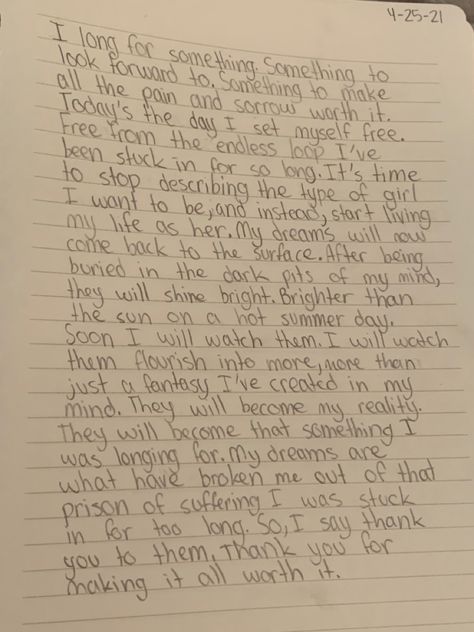 4-25-21
I long for something. Something to
look forward to. Something to make
all the pain and sorrow worth it.
Today's the day I set myself free.
Free from the endless loop I've
been stuck in for so long. It's time
to stop describing the type of girl
I want to be, and instead, start living
my life as her. My dreams will now
come back to the surface. After being
buried in the dark pits of my mind,
they will shine bright. Brighter than
the sun on a hot summer day.
Soon I will watch them. I will watch
them flourish into more, more than
just a fantasy I've created in my
mind. They will become my reality.
They will become that something I
was longing for. My dreams are
what have broken me out of that
prison of suffering I was stuck
in for too long. So, I say thank
you to them. Thank you for
making it all worth it.